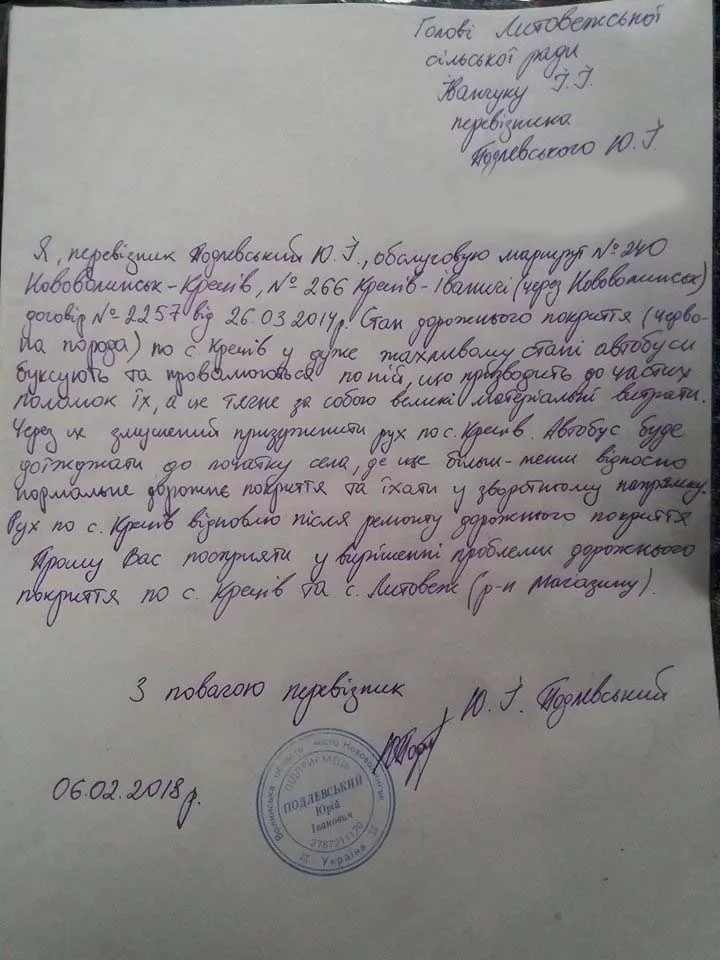 Голові Литовежської
сільської ради
Іванчуку І.І.
перевізника
Подлевського Ю.І.
Я, перевізник Подлевський Ю.І., обслуговую маршрут №240
Нововолинськ-Кречів, №266 Кречів-Іваничі (через Нововолинськ)
договір №2257 від 26.03.2014р. Стан дорожнього покриття (черво-
на порода) по с. Кречів у дуже жахливому стані автобуси
буксують та провалюються по ній, що призводить до частих
поломок їх, а це тягне за собою великі матеріальні витрати.
Через це змушений призупинити рух по с. Кречів. Автобус буде
доїжджати до початку села, де ще більш-менш відносно
нормальне дорожнє покриття та їхати у зворотньому напрямку.
Рух по с. Кречів відновлю після ремонту дорожнього покриття
Прошу Вас посприяти у вирішенні проблеми дорожнього
покриття по с. Кречів та с. Литовеж (р-н магазину).
З повагою перевізник Ю.І. Подлевський
06.02.2018р.
Волинська область місто Нововолинськ
ПІДПРИЄМЕЦЬ
ПОДЛЕВСЬКИЙ
Юрій
Іванович
Україна